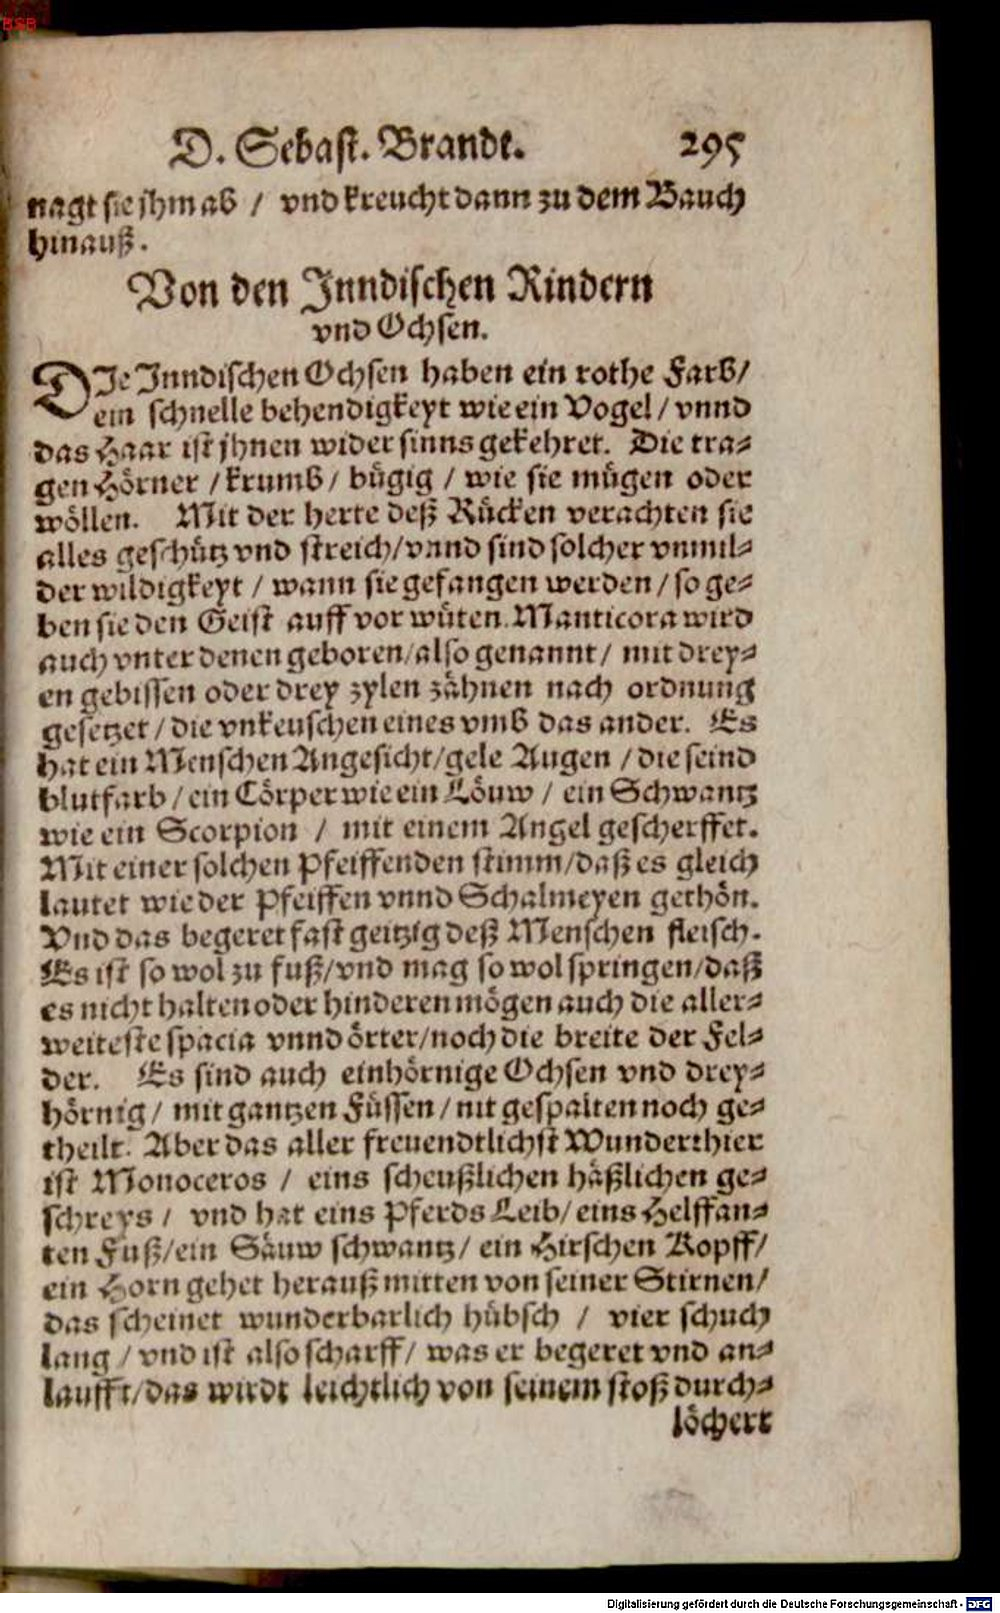 BSB
D. Sebast. Brandt. 295
nagt sie jhm ab / vnd kreucht dann zu dem Bauch
hinauß.
Von den Inndischen Rindern
vnd Ochsen.
DIe Inndischen Ochsen haben ein rothe Farb/
ein schnelle behendigkeyt wie ein Vogel / vnnd
das Haar ist jhnen widersinns gekehret. Die tra⸗
gen Hörner / krumb / bügig / wie sie mügen oder
wöllen. Mit der herte deß Rücken verachten sie
alles geschütz vnd streich/ vnnd sind solcher vnmil⸗
der wildigkeyt / wann sie gefangen werden / so ge⸗
ben sie den Geist auff vor wüten. Manticora wird
auch vnter denen geboren/ also genannt / mit drey⸗
en gebissen oder drey zylen zähnen nach ordnung
gesetzet / die vnkeuschen eines vmb das ander. Es
hat ein Menschen Angesicht/ gele Augen / die seind
blutfarb / ein Cörper wie ein Löuw / ein Schwantz
wie ein Scorpion / mit einem Angel gescherffet.
Mit einer solchen Pfeiffenden stimm/ daß es gleich
lautet wie der Pfeiffen vnnd Schalmeyen gethön.
Vnd das begeret fast geitzig deß Menschen fleisch.
Es ist so wol zu fuß/ vnd mag so wol springen/ daß
es nicht halten oder hinderen mögen auch die aller⸗
weiteste spacia vnnd örter/ noch die breite der Fel⸗
der. Es sind auch einhörnige Ochsen vnd drey⸗
hörnig / mit gantzen Füssen / nit gespalten noch ge⸗
theilt. Aber das aller freuendtlichst Wunderthier
ist Monoceros / eins scheußlichen häßlichen ge⸗
schreys / vnd hat eins Pferds Leib/ eins Helffan⸗
ten Fuß/ ein Säuw schwantz/ ein Hirschen Kopff/
ein Horn gehet herauß mitten von seiner Stirnen/
das scheinet wunderbarlich hübsch / vier schuch
lang / vnd ist also scharff/ was er begeret vnd an⸗
laufft/ das wirdt leichtlich von seinem stoß durch⸗
löchert
Digitalisierung gefördert durch die Deutsche Forschungsgemeinschaft - DFG